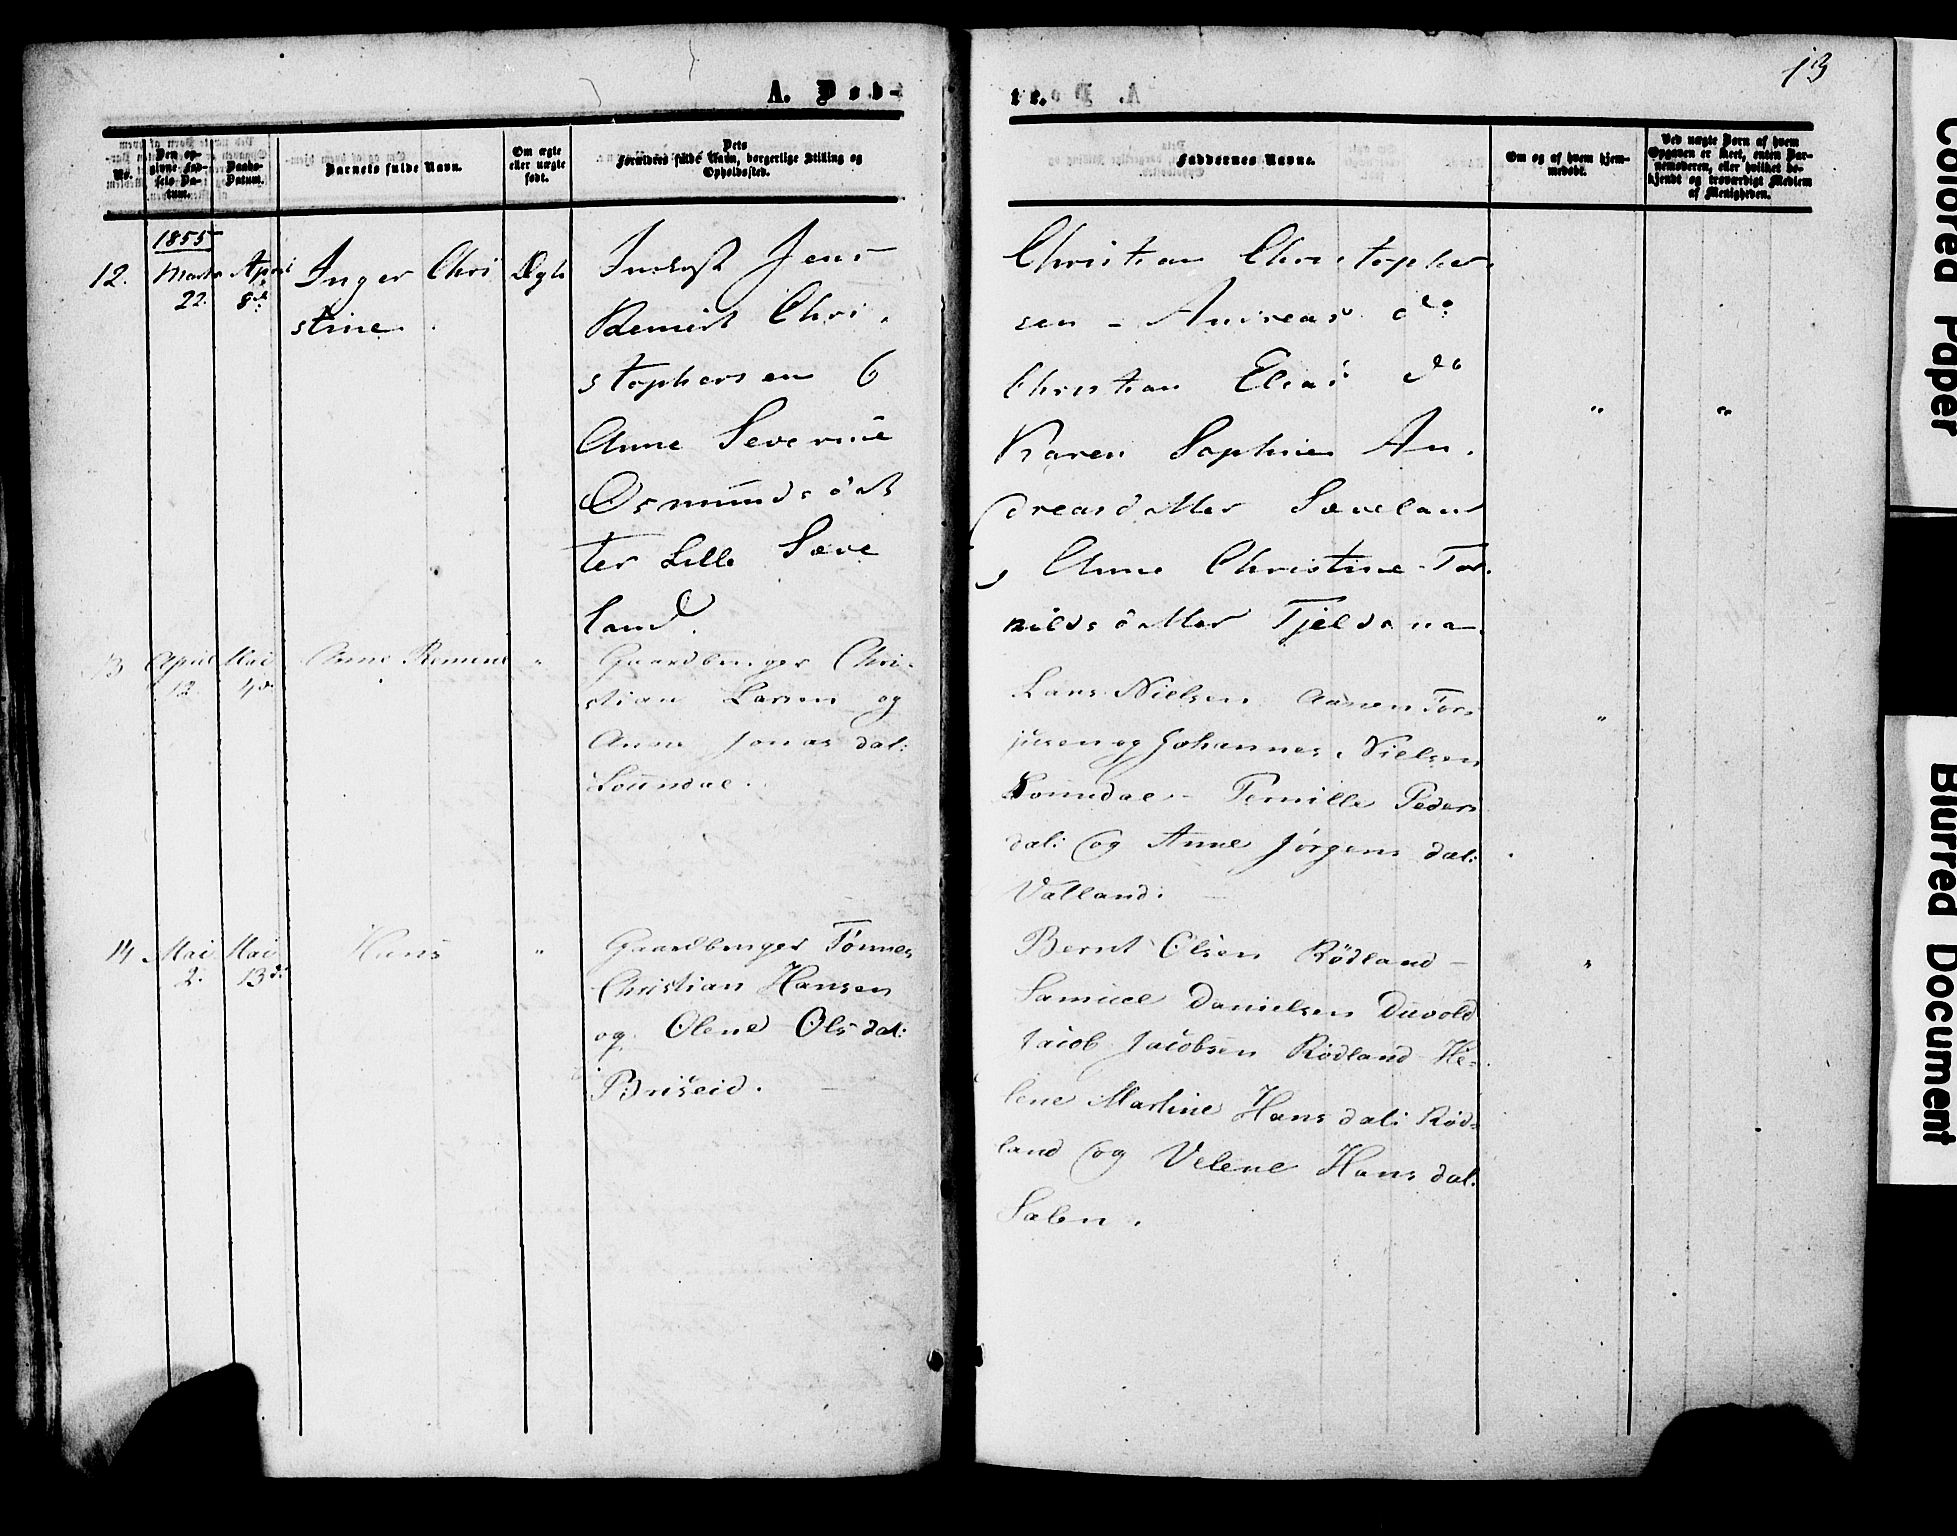 13
A. Døb-
te.
No.
Den op-
givne Fød-
sels Da-
tum.
Daabs-
Datum.
Barnets fulde Navn.
Om ægte
eller uægte
født.
Dets
Forældres fulde Navn, borgerlige Stilling og
Opholdssted.
Faddernes Navne.
Om og af hvem hjem-
medøbt.
Ved uægte Børn af hvem
Opgaven er skeet, enten Bar-
nemoderen, eller hvilket be-
kjendt og troværdigt Medlem
af Menigheden.
1855
12.
Marts
22.
April
8de
Inger Chri
stine.
Ægte
Jens
Chri.
stophersen
Anne Severine
Osmundsdat
ter Lille Sæve
land.
Christian Christopher
sen - Andreas do
Christian Elias do
Karen Sophie An.
dreasdatter Sæveland
Anne Christine
"
"
13
April
12.
Mai
Anne
"
Gaardbruger Chri-
stian Larsen og
Anne Jonas dat:
Lars Nielsen
og Johannes Nielsen
Pernille Peders
dat: og Anne Jørgens dat:
Valland:
"
14
Mai
2.
Mai
13de
Hans
"
Gaardbruger Tønnes
Christian Hansen
og Olene Ols dat:
Briseid.
Bernt Olsen Rødland -
Samuel Danielsen
Jacob Jacobsen Rødland He-
lene Martine Hans dat: Rød-
land og Velene Hans dat.
"
Colored Paper
Blurred Document